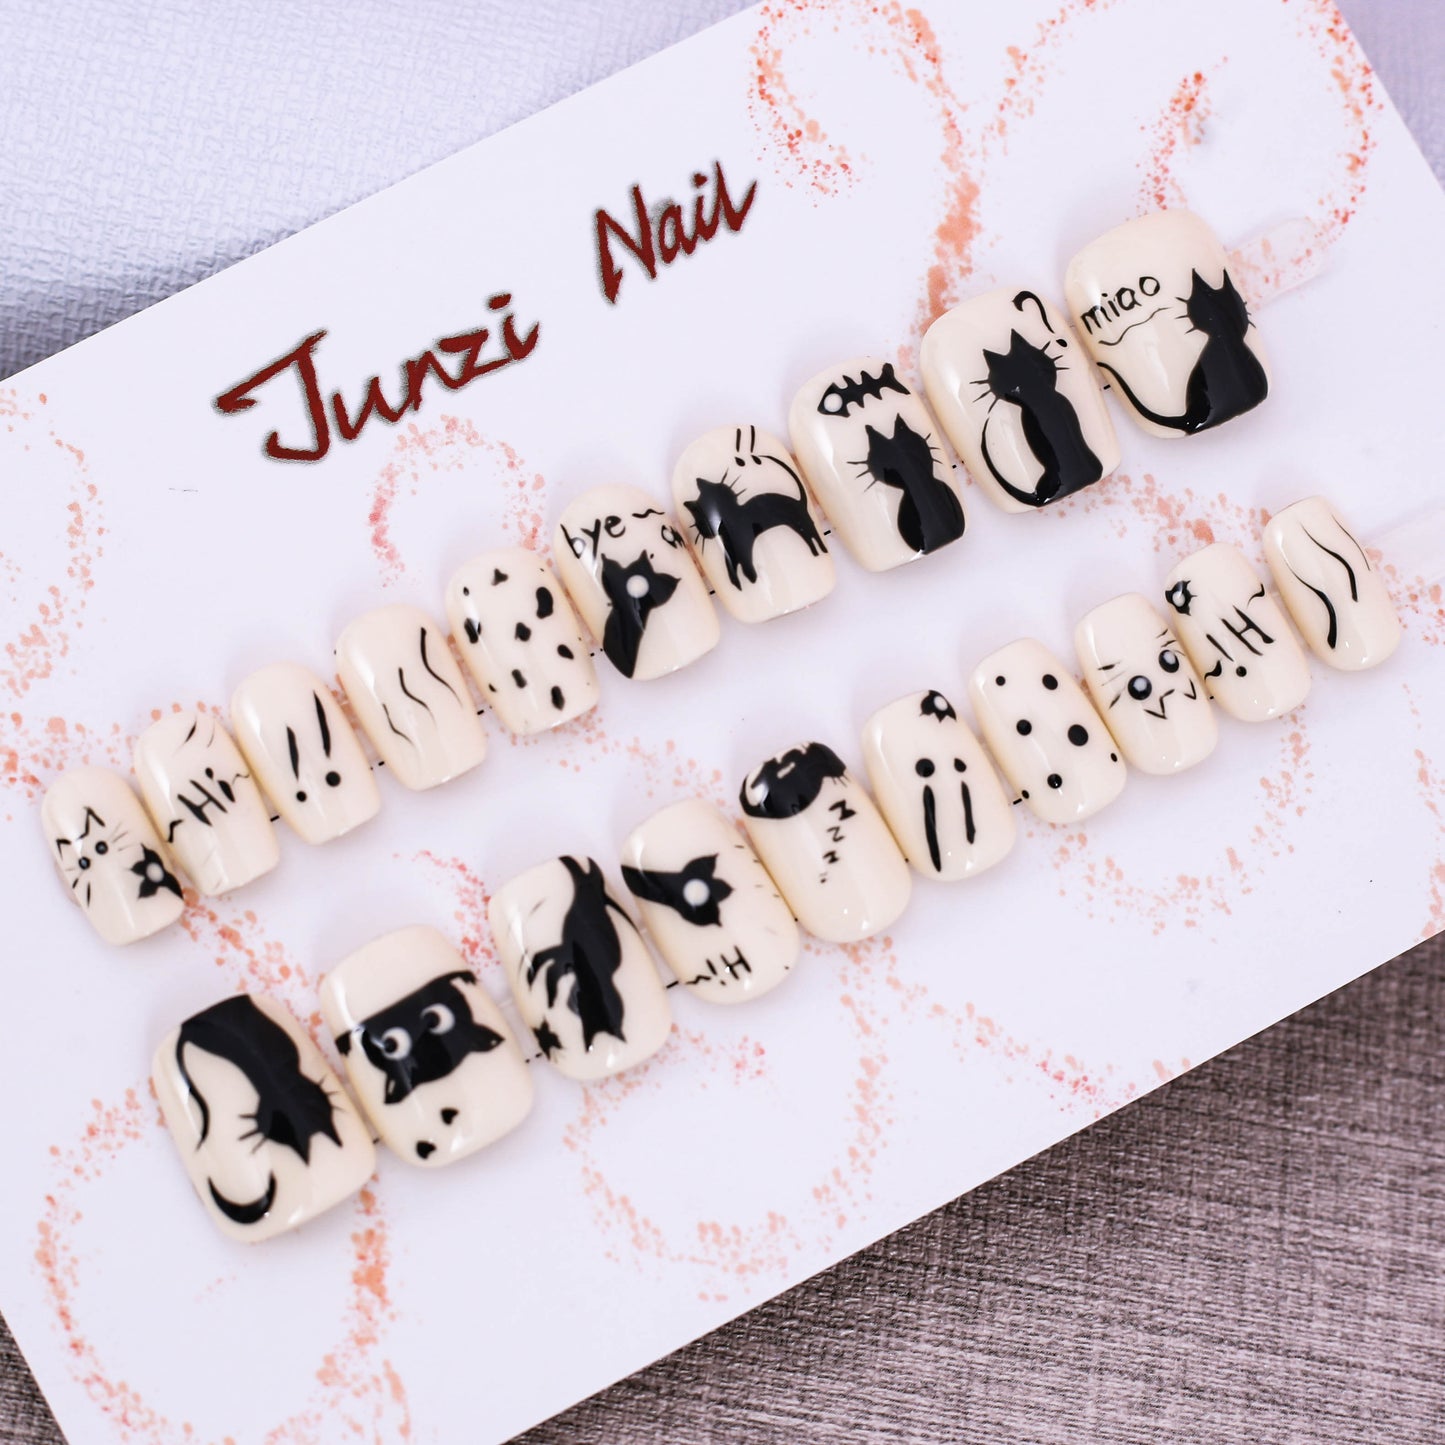 Junzi Nail
~Hi~
!!
bye~
!!
?
miao
Hi~
zzz
!!
~Hi~